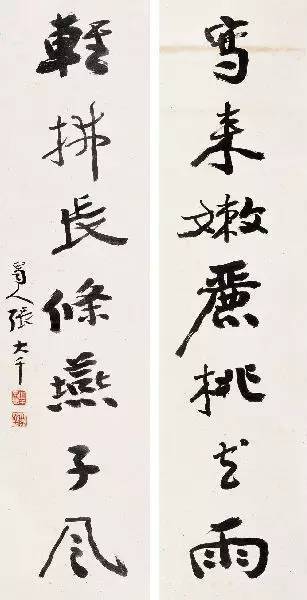 寫來嫩麗桃花雨
輕拂長條燕子風
蜀人張大千